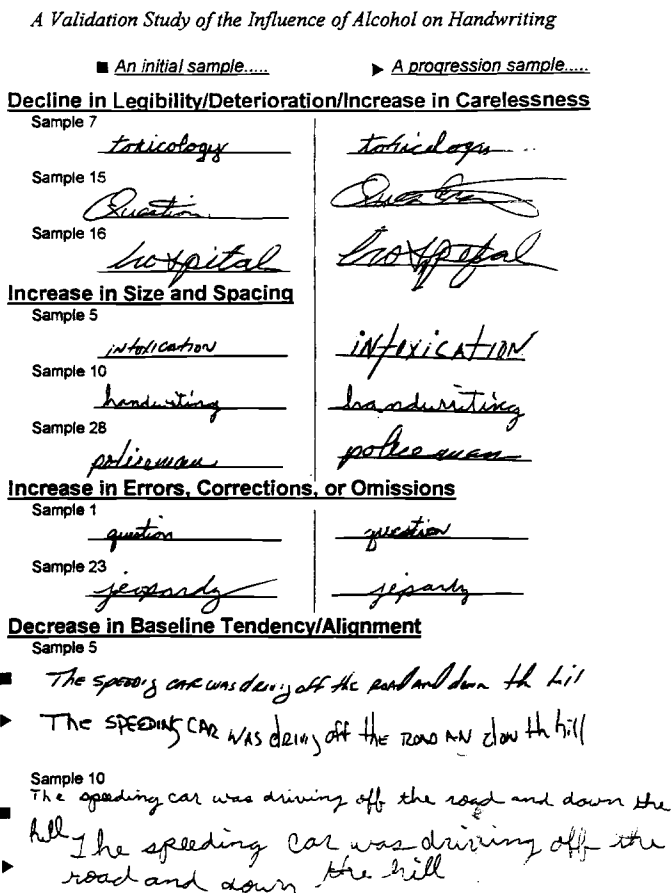 A Validation Study of the Influence of Alcohol on Handwriting
■ An initial sample..... ► A progression sample.....
Decline in Legibility/Deterioration/Increase in Carelessness
Sample 7
toxicology
Sample 15
Question
Sample 16
hospital
Increase in Size and Spacing
Sample 5
intoxication iNtoxicATION
Sample 10
handwriting handwriting
Sample 28
policeman policeman
Increase in Errors, Corrections, or Omissions
Sample 1
question question
Sample 23
jeopardy jepardy
Decrease in Baseline Tendency/Alignment
Sample 5
■ The car was off the ROAD AND down th hill
► The SPEEDING CAR WAS off THE ROAD AN dow th hill
Sample 10
The speeding car was driving off the road and down the
■ hill
The speeding car was driving off the
► road and down the hill